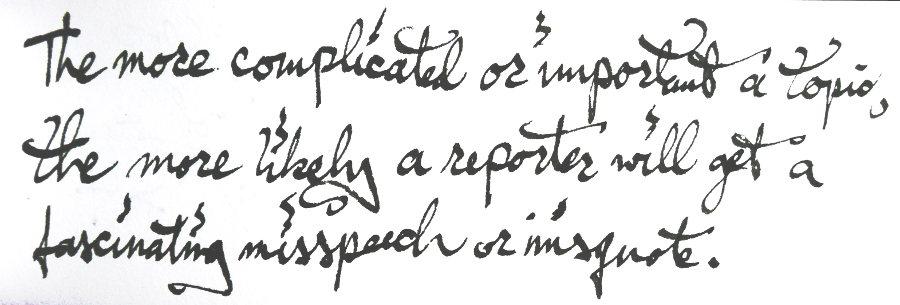 The more complicated or important a topic,
the more likely a reporter will get a
fascinating misspeech or misquote.